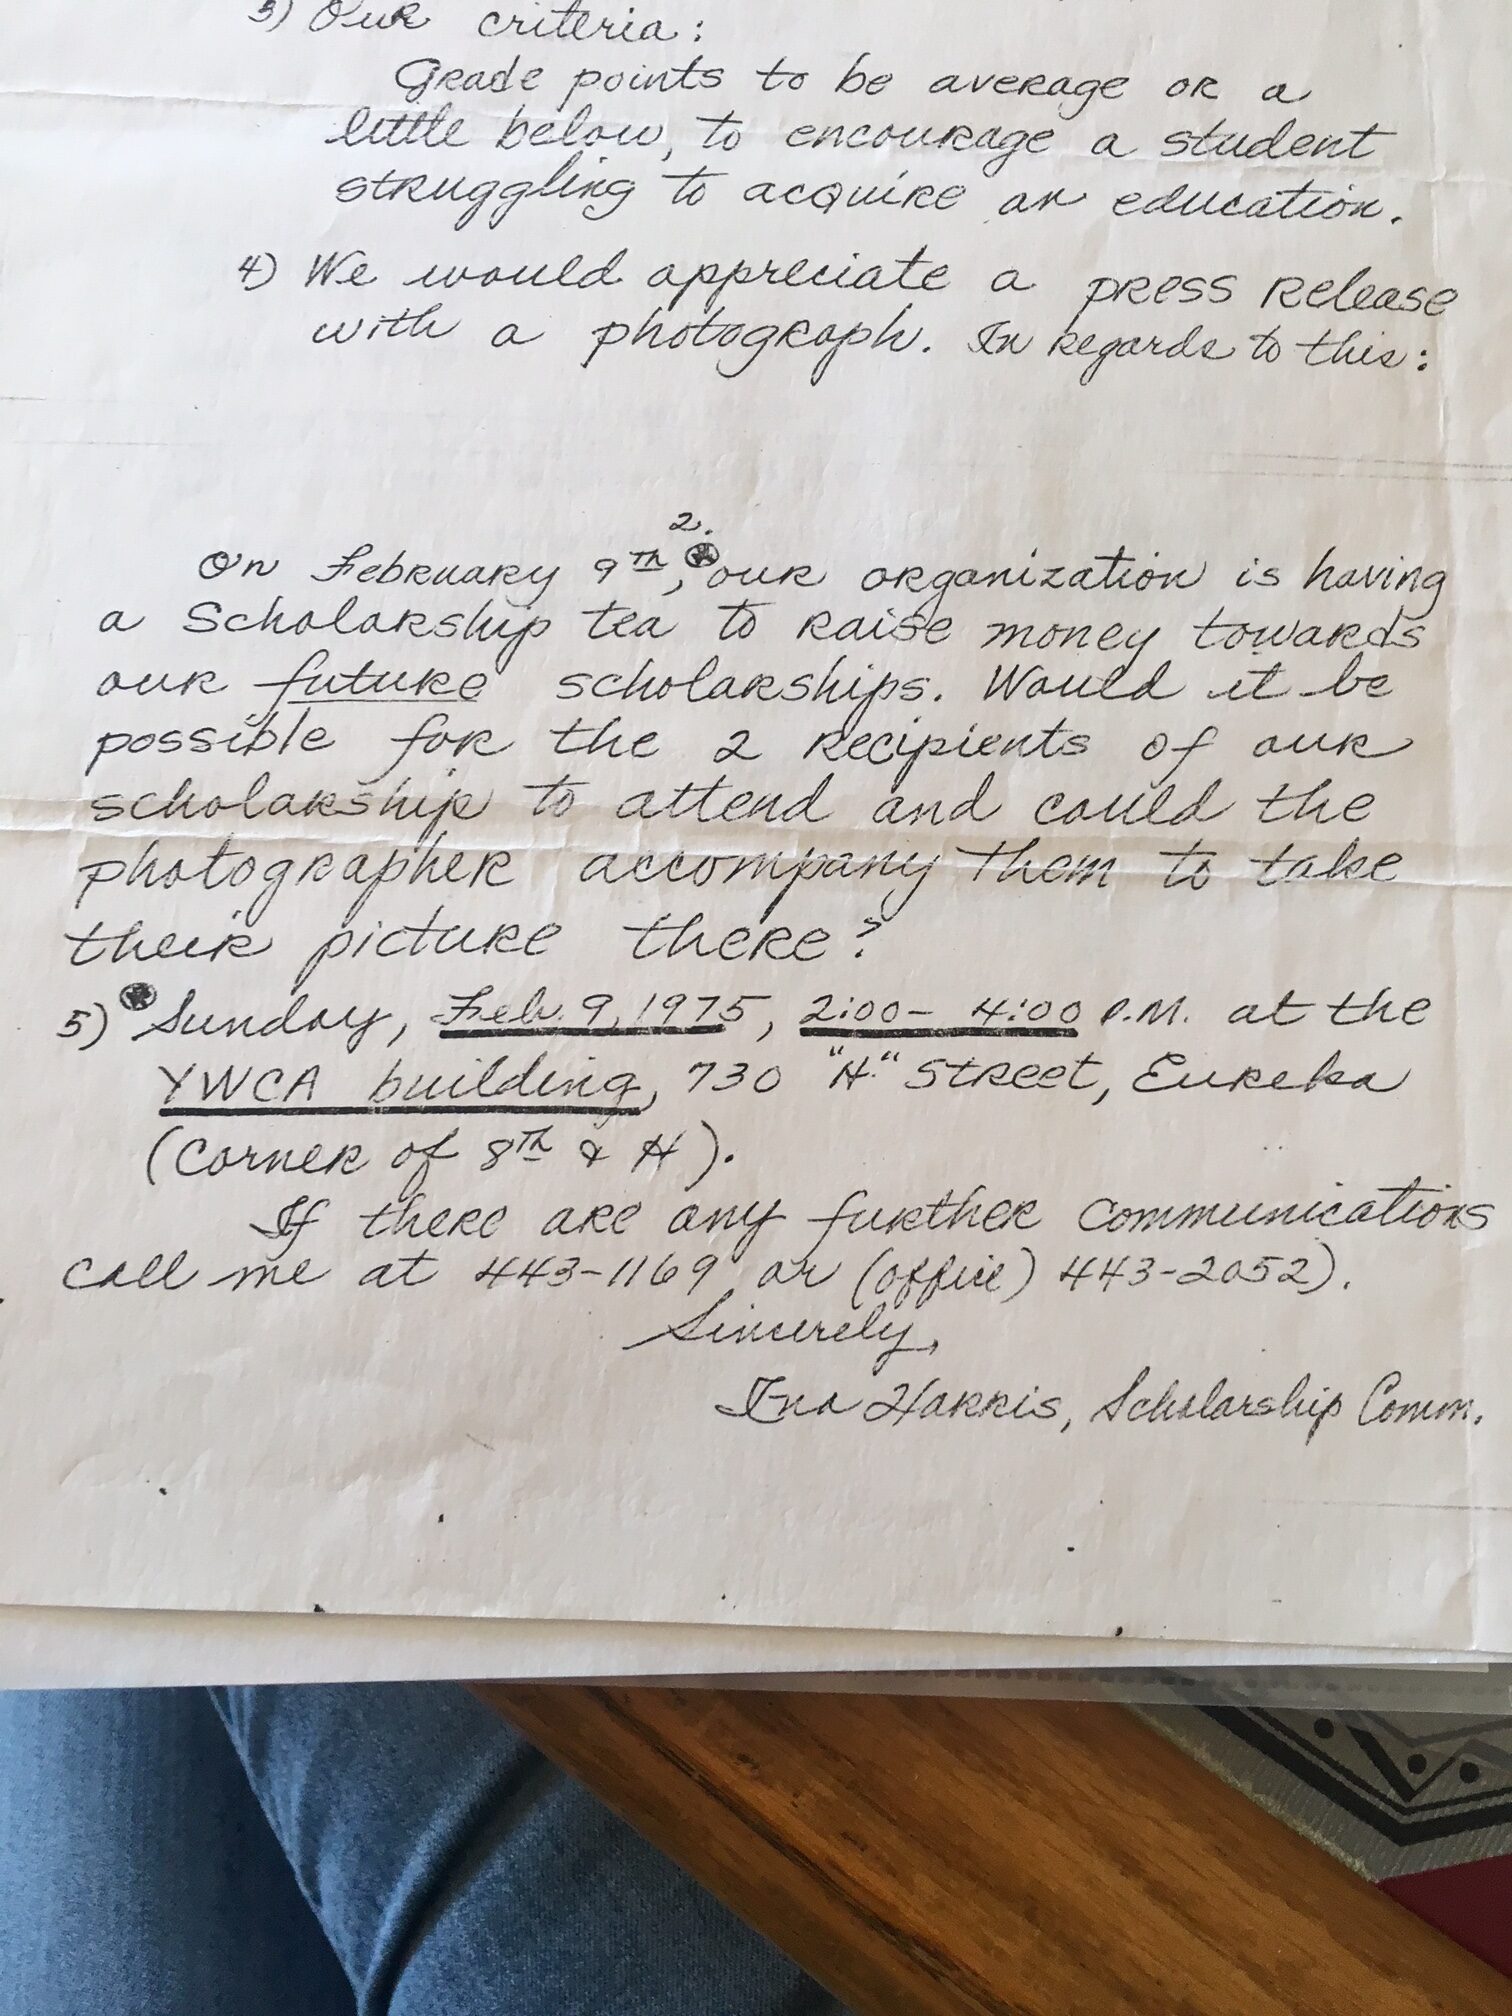 3) Our criteria:
Grade points to be average or a
little below, to encourage a student
struggling to acquire an education.
4) We would appreciate a press release
with a photograph. In regards to this:
2.
On February 9th, our organization is having
a Scholarship tea to raise money towards
our future scholarships. Would it be
possible for the 2 recipients of our
scholarship to attend and could the
photographer accompany them to take
their picture there?
5) Sunday, Feb. 9, 1975, 2:00- 4:00 P.M. at the
YWCA building, 730 "H" Street, Eureka
(Corner of 8th & H).
If there are any further communications
call me at 443-1169 or (office) 443-2052).
Sincerely,
Ina Harris, Scholarship Comm.